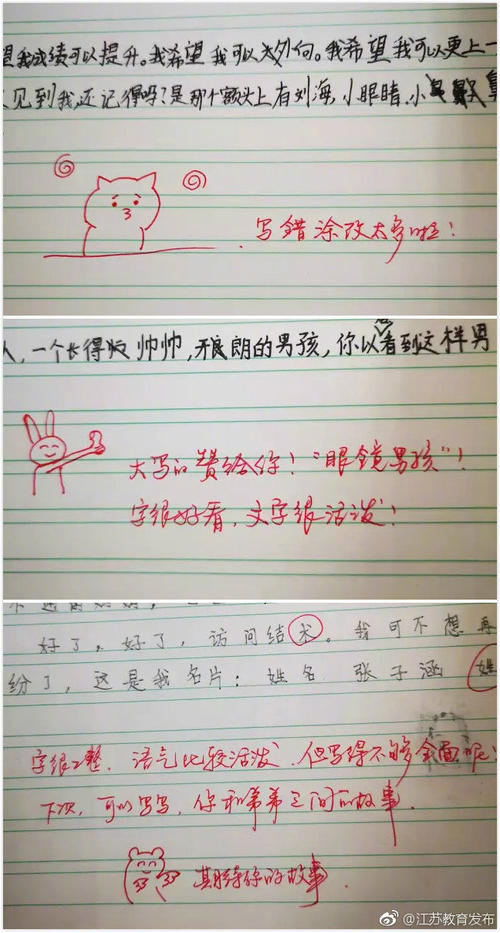 望我成绩可以提升。我希望我可以外向。我希望我可以更上一
见到我,还记得吗?是那个额头上有刘海,小眼睛.小
写错涂改太多啦!
人,一个长得帅帅,开朗的男孩,你以看到这样男
大写的赞给你!“眼镜男孩”!
字很好看,文字很活泼!
好了,好了,访问结术。我可不想再
纷了,这是我名片:姓名 张子涵 姓
字很工整,语气比较活泼,但写得不够全面呢!
下次,可以写写,你和弟弟之间的故事.
期待你的故事.
@江苏教育发布